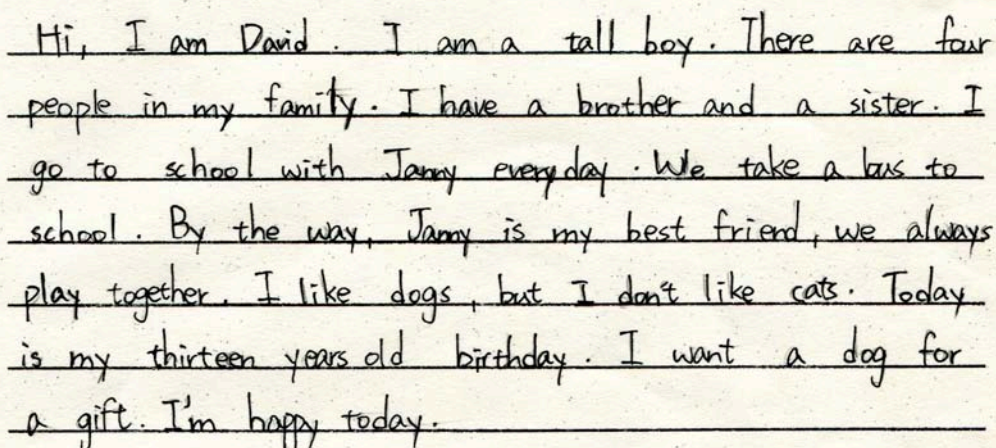 Hi, I am David. I am a tall boy. There are four
people in my family. I have a brother and a sister. I
go to school with Jamy everyday. We take a bus to
school. By the way, Jamy is my best friend, we always
play together. I like dogs, but I don't like cats. Today
is my thirteen years old birthday. I want a dog for
a gift. I'm happy today.